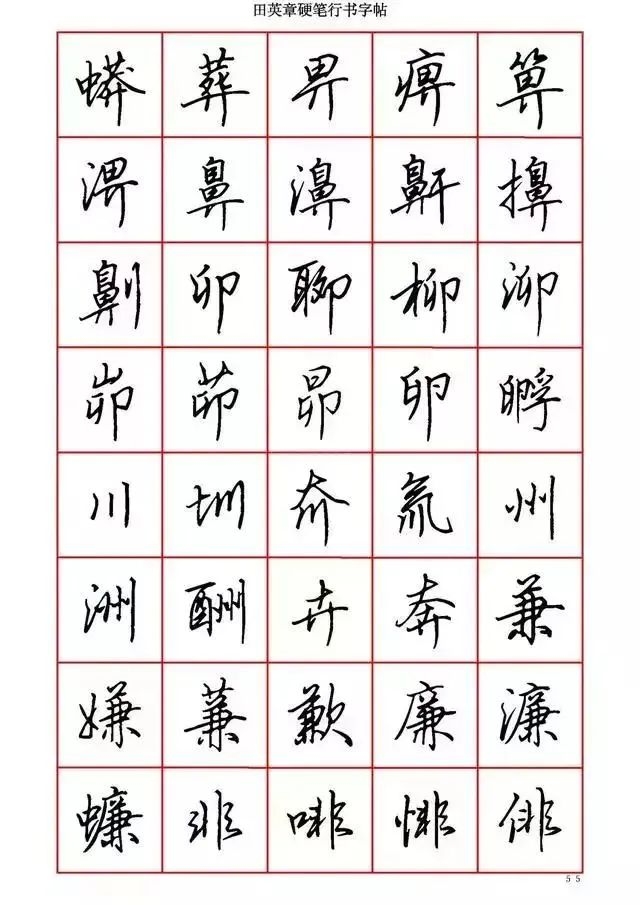 田英章硬笔行书字帖
蟒 葬 畀 痹 箅
淠 鼻 濞 鼾 擤
劓 卯 聊 柳 泖
峁 茆 昴 卵 孵
川 圳 夼 氚 州
洲 酬 卉 奔 兼
嫌 蒹 歉 廉 濂
蠊 非 啡 悱 俳
55